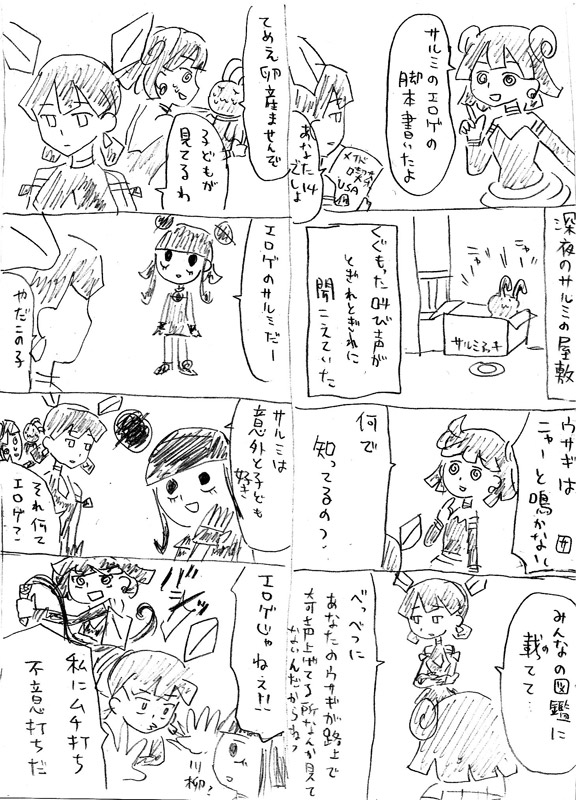 サルミのエロゲの
脚本書いたよ
あなた14
でしょ
USA
深夜のサルミの屋敷
ニャー
ニャー
サルミアッキ
くぐもった叫び声が
とぎれとぎれに
聞こえていた
ウサギは
ニャーと鳴かないし
何で
知ってるの?
みんなの図鑑に
載ってて…
べっべつに
あなたのウサギが路上で
奇声上げてる所なんか見て
ないんだからね?
てめえ卵産ませんで
子どもが
見てるわ
エロゲのサルミだー
やだこの子
サルミは
意外と子ども
好き
それ何て
エロゲ?
エロゲじゃねえ!!
バシッ
私にムチ打ち
不意打ちだ
川柳!